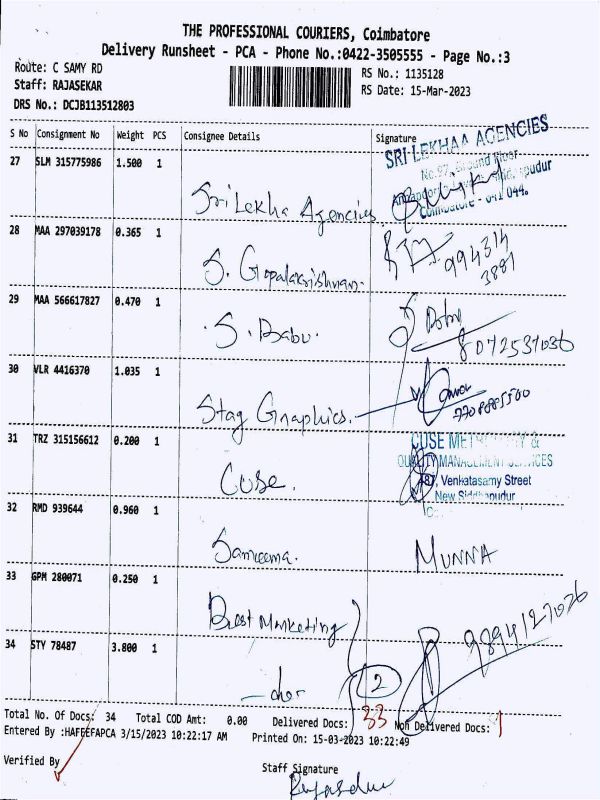 THE PROFESSIONAL COURIERS, Coimbatore
Delivery Runsheet - PCA - Phone No.:0422-3505555 - Page No.:3
Route: C SAMY RD
RS No.: 1135128
Staff: RAJASEKAR
RS Date: 15-Mar-2023
DRS No.: DCJB113512803
S No Consignment No Weight PCS Consignee Details Signature
SRI LEKHAA AGENCIES
27 SLM 315775986 1.500 1
No.97, Ground Floor
Coimbatore - 641 044.
Sri Lekha Agencies
28 MAA 297039178 0.365 1
S. Gopalakrishnan. 994314
3881
29 MAA 566617827 0.470 1
S. Babu.
8072537036
30 VLR 4416370 1.035 1
Stag Graphics. 7708885500
31 TRZ 315156612 0.200 1
CUSE METROLOGY &
QUALITY MANAGEMENT SERVICES
487, Venkatasamy Street
New Siddhapudur
CUSE.
32 RMD 939644 0.960 1
Sameema. MUNNA
33 GPM 280071 0.250 1
Best Marketing 9894127026
34 STY 78487 3.800 1
-do- 2
Total No. Of Docs: 34 Total COD Amt: 0.00 Delivered Docs: 33 Non Delivered Docs: 1
Entered By :HAFEEFAPCA 3/15/2023 10:22:17 AM Printed On: 15-03-2023 10:22:49
Verified By
Staff Signature